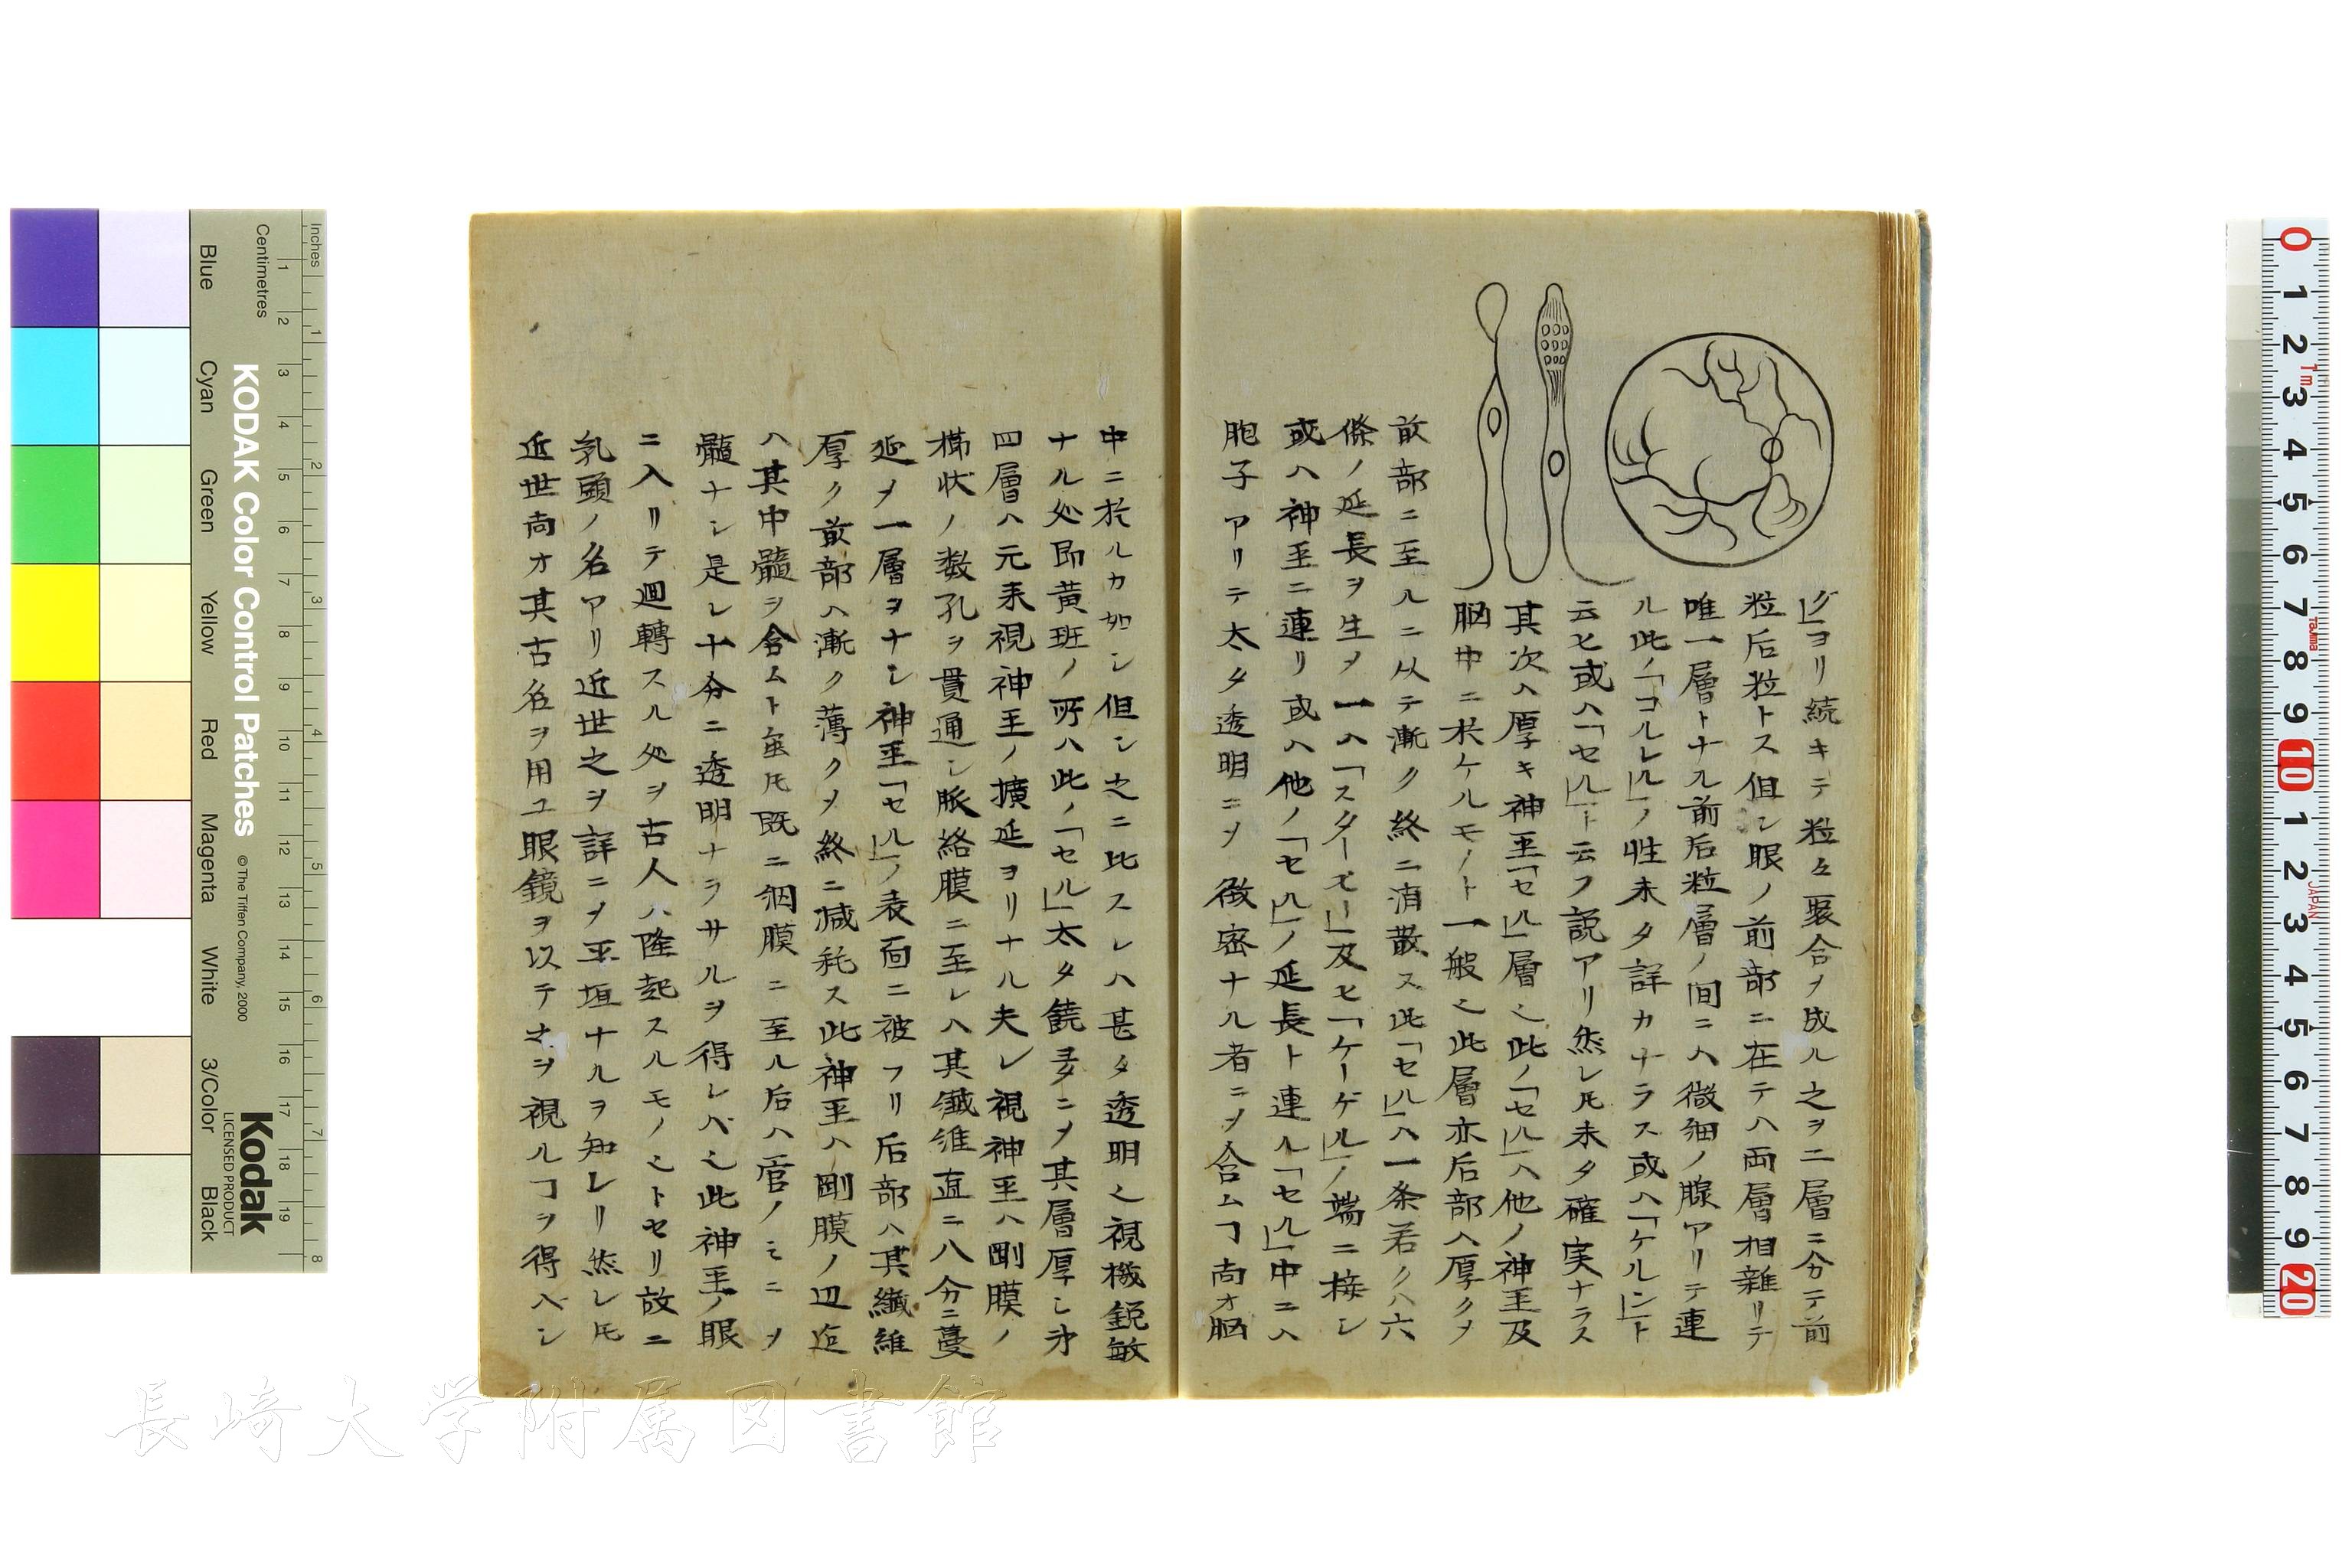 グ」ヨリ続キテ粒々裂合ヲ成ル之ヲ二層ニ分テ前
粒后粒トス但シ眼ノ前部ニ在テハ両層相雑リテ
唯一層トナル前后粒層ノ間ニハ微細ノ腺アリテ連
ル此ノ「コルレル」ノ性未タ詳カナラス或ハ「ケルン」ト
云ヒ或ハ「セル」ト云フ説アリ然レ𪜈未タ確実ナラス
其次ハ厚キ神圣「セル」層之此ノ「セル」ハ他ノ神圣及
脳中ニ于ケルモノト一般之此層亦后部ハ厚クメ
前部ニ至ルニ从テ漸ク終ニ消散ス此「セル」ハ一条若クハ六
條ノ延長ヲ生メ一ハ「スターモー」及ヒ「ケーゲル」ノ端ニ接シ
或ハ神圣ニ連リ或ハ他ノ「セル」ノ延長ト連ル「セル」中ニハ
胞子アリテ太タ透明ニメ緻密ナル者ニメ含ムヿ尚ホ脳
中ニ於ルカ如シ但シ之ニ比スレハ甚タ透明之視機鋭敏
ナル処即黄班ノ所ハ此ノ「セル」太タ饒多ニメ其層厚シ㐧
四層ハ元来視神圣ノ擴延ヨリナル夫レ視神圣ハ剛膜ノ
櫛状ノ数孔ヲ貫通シ脈絡膜ニ至レハ其纎維直ニ八分ニ蔓
延メ一層ヲナシ神圣「セル」ノ表面ニ被フリ后部ハ其纎維
厚ク前部ハ漸ク薄クメ終ニ減耗ス此神圣ハ剛膜ノ辺迄
ハ其中髓ヲ含ムト虽𪜈既ニ網膜ニ至ル后ハ管ノミニメ
髓ナシ是レ十分ニ透明ナラサルヲ得レハ之此神圣ノ眼
ニ入リテ廻轉スル処ヲ古人ハ隆起スルモノ之トセリ故ニ
乳頭ノ名アリ近世之ヲ詳ニメ平垣ナルヲ知レリ然レ𪜈
近世尚オ其古名ヲ用ユ眼鏡ヲ以テ之ヲ視ルヿヲ得ヘシ
Inches
Centimetres
KODAK Color Control Patches
© The Tiffen Company, 2000
Kodak
LICENSED PRODUCT
Blue
Cyan
Green
Yellow
Red
Magenta
White
3/Color
Black
長崎大学附属図書館